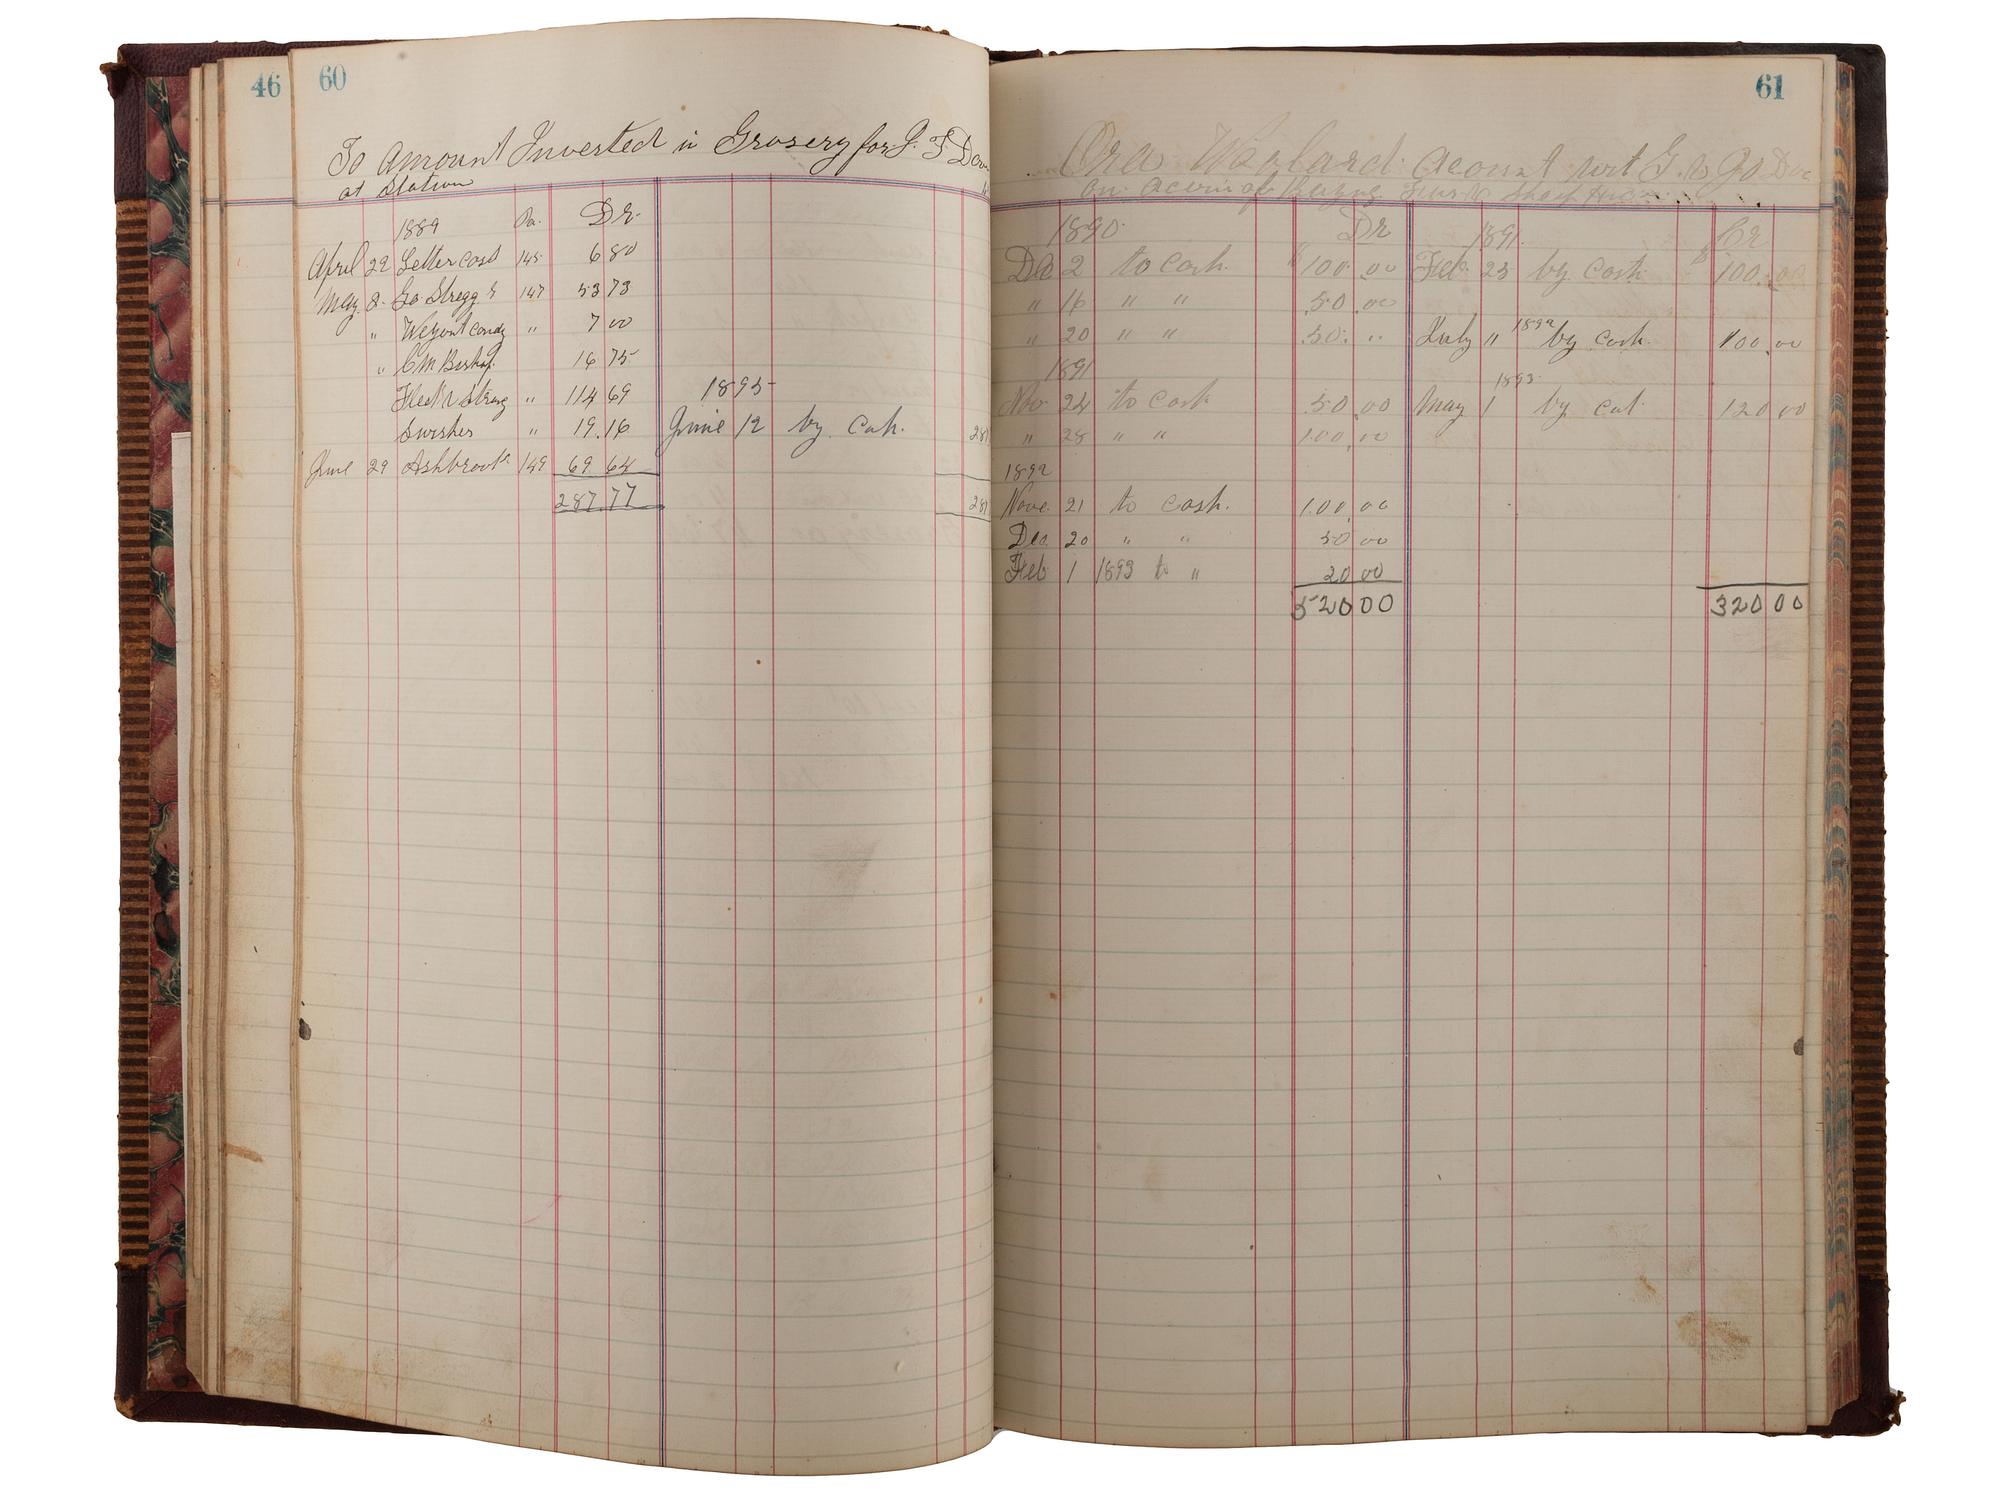 46 60
To Amount Invested in Grosery for J. F Dov
at Station
1889 Pa. Dr.
April 29 Letter cost 145 6 80
May 8 Go. Stregg & 147 53 73
" candy " 7 00
" C M Bishop 16 75
Fleek & Strong " 114 69
Swisher " 19.16
June 29 Ashbrook 149 69 64
287.77
1895
June 12 by Cash. 287
287
61
Ora Woolard Acount wit G. W
on
1890. Dr
Dec 2 to Cash. $100.00
" 16 " " 50.00
" 20 " " 50. "
1891
Nov 24 to Cash 50.00
" 28 " " 100.00
1892
Nove. 21 to Cash. 100.00
Dec 20 " " 50 00
Feb 1 1893 to " 20 00
520 00
1891. Cr
Feb. 25 by Cash $100.00
1892
July " by Cash. 100.00
1893.
May 1 by Cas 120 00
320 00